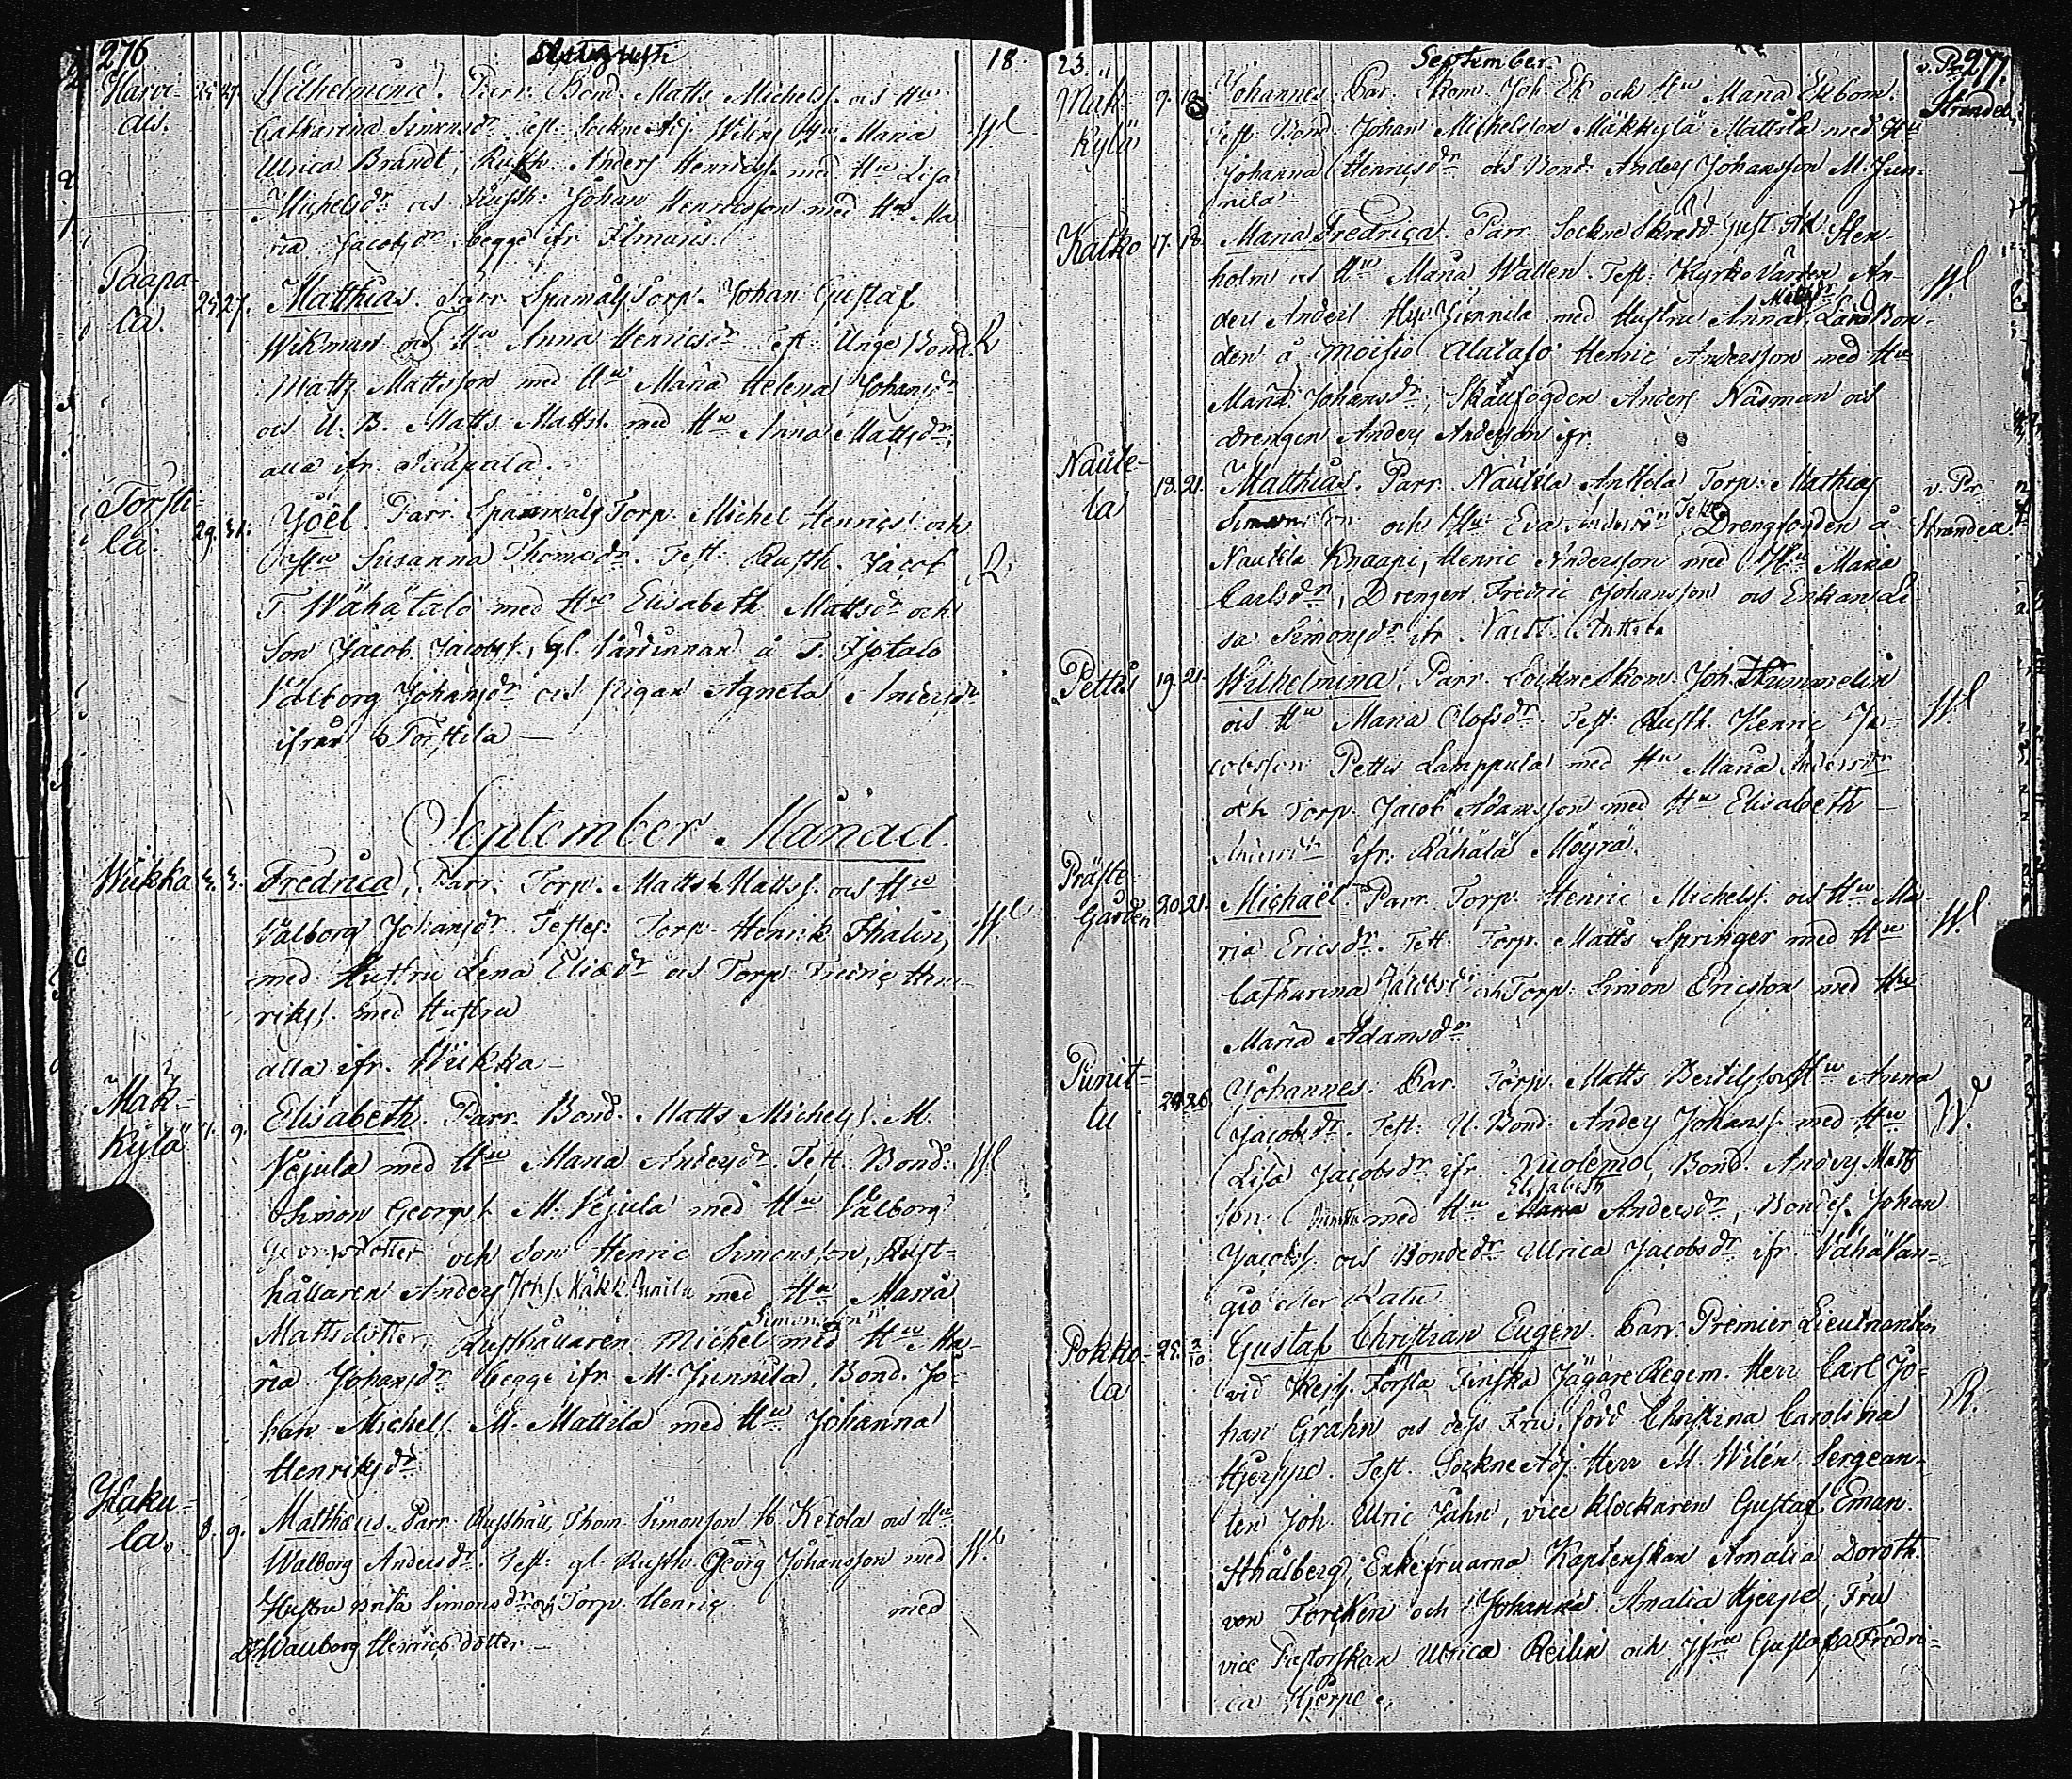 276 Augusti 18
Harvi- Wilhelmina. Parr. Bond. Matts Michelss. och Hu
ala. Catharina Simonsdr Test: Sockne Adj. Wilén, Maria Wl
Ulrica Brandt, Rusth. Anders Henricss. med Hu Lisa
Michelsdr och Rusth: Johan Henricsson med Hu Ma
ria Jacobsdr begge ifr
Paapa-
la. 25. 27. Matthias. Parr. Spamåls Torp. Johan Gustaf
Wikman och Hu Anna Henricsdr Test: Unge Bond. R
Matts Mattsson med Hu Maria Helena Johansdr
och U. B. Matts Mattss. med Hu Anna Mattsdr
alla ifr. Paapala.
Torsti-
la. 29. 31. Joël. Parr. Spanmåls Torp. Michel Henricss. och
Hu Susanna Thomsdr. Test: Rusth. Jacob R
T. Wähätalo med Hu Elisabeth Mattsdr och
Son Jacob Jacobss., gl. Värdinnan å T. Isotalo
Valborg Johansdr och Pigan Agneta Andersdr
ifrån Torstila
September Månad.
Wiikka 3. 3. Fredrica, Parr: Torp. Matts Mattss. och Hu
Valborg Johansdr. Testes: Torp. Henrik Thalin, Wl
med Hustru Lena Eliædr och Torp. Fredric Hen-
rikss. med Hustru
alla ifr. Wiikka
Mäk-
kylä 9. Elisabeth. Parr. Bond. Matts Michelss. M.
Vejula med Hu Maria Andersdr. Test. Bond: Wl
Simon Georgss. M. Vejula med Hu Valborg
Georgsdotter och Son Henric Simonsson, Rust-
hållaren Anders Johss. Mäkk. Junnila med Hu Maria
Mattsdotter, Rusthållaren Michel Simonsson med Hu Ma-
ria Johansdr begge ifr M. Junnila, Bond. Jo-
han Michelss. M. Mattila med Hu Johanna
Henriksdr
Haku-
la. 8. 9. Matthæus. Parr. Rusthåll. Thom. Simonsson H. Ketola och Hu
Walborg Andersdr. Test: gl. Rusth. Georg Johansson med Wl
Hustru Brita Simonsdr och Torp. Henric med
Dr Wallborg Henricsdotter
23. September. v. Pr 277.
Mäk- 9. Johannes. Par. Skom. Joh. Ek och Hu Maria Ekbom. Strandell
kylä Test. Bond. Johan Michelsson Mäkkylä Mattila med Hu
Johanna Henricsdr och Bond. Anders Johansson M. Jun-
nila
Kalko 17. 18. Maria Fredrica. Parr. Sockne Skradd. Gust. Ad. Sten-
holm och Hu Maria Wallen. Test: Kyrko Värden An- Wl
ders Anderss. Junnila med Hustru Anna Mattsdr, Land Bon-
den å Moisio Alatalo Henric Andersson med Hu
Maria Johansdr, Skallfogden Anders Näsman och
drengen Anders Andersson ifr.
Nautè-
la 18. 21. Matthias. Parr. Nautela Anttola Torp. Mathias v. Pr.
Simonsson och Hu Eva Test: Drengfogden å Strandell
Nautela Knaapi, Henric Andersson med Hu Maria
Carlsdr, Drengen Fredric Johansson och Enkan Li-
sa Simonsdr ifr Naut. Anttola
Pettis 19. 21. Wilhelmina. Parr. Sockne Skom. Joh. Thummelin
och Hu Maria Olofsdr. Test: Rusth. Henric Ja- Wl
cobsson Pettis Lamppula med Hu Maria Andersdr
och Torp. Jacob Adamsson med Hu Elisabeth
ifr. Rähälä Möyrä.
Präste-
Gården 20. 21. Michaël. Parr. Torp. Henric Michelss. och Hu Ma-
ria Ericsdr. Test: Torp. Matts Springer med Hu Wl
Catharina Jacobsdr och Torp. Simon Ericsson med Hu
Maria Adamsdr
Punit-
tu 26. Johannes. Par. Torp. Matts Bertilsson Hu Anna
Jacobsdr. Test: U. Bond. Anders Johanss. med Hu W.
Lisa Jacobsdr ifr. Nuolemo, Bond. Anders Matts-
son med Hu Elisabeth Andersdr, Bondes. Johan
Jacobss. och Bondedr Ulrica Jacobsdr ifr. Vähä Van-
gio eller Katu
Pokko-
la 25. 2/10 Gustaf Christian Eugén. Parr. Premier Lieutnanten
vid Kejs. Första Finska Jägare Regem. Herr Carl Jo-
han Grahn och dess Fru, född Christina Carolina R.
Hjerppe. Test. Sockne Adj. Herr M. Wilén, Sergean-
ten Joh. Ulric Jahn, vice klockaren Gustaf Eman.
Sthålberg, Enkefruarna Kaptenskan Amalia Doroth.
von Forskén och Johanna Amalia Hjerpe, Fru
vice Pastorskan Ulrica Reilin och Jfru Gustafva Fredri-
ca Hjerpe